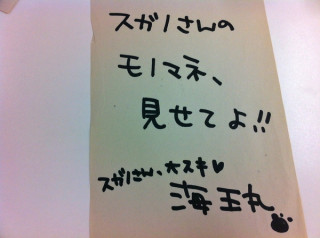 スガノさんの
モノマネ、
見せてよ!!
スガノさん、大スキ♥
海王丸